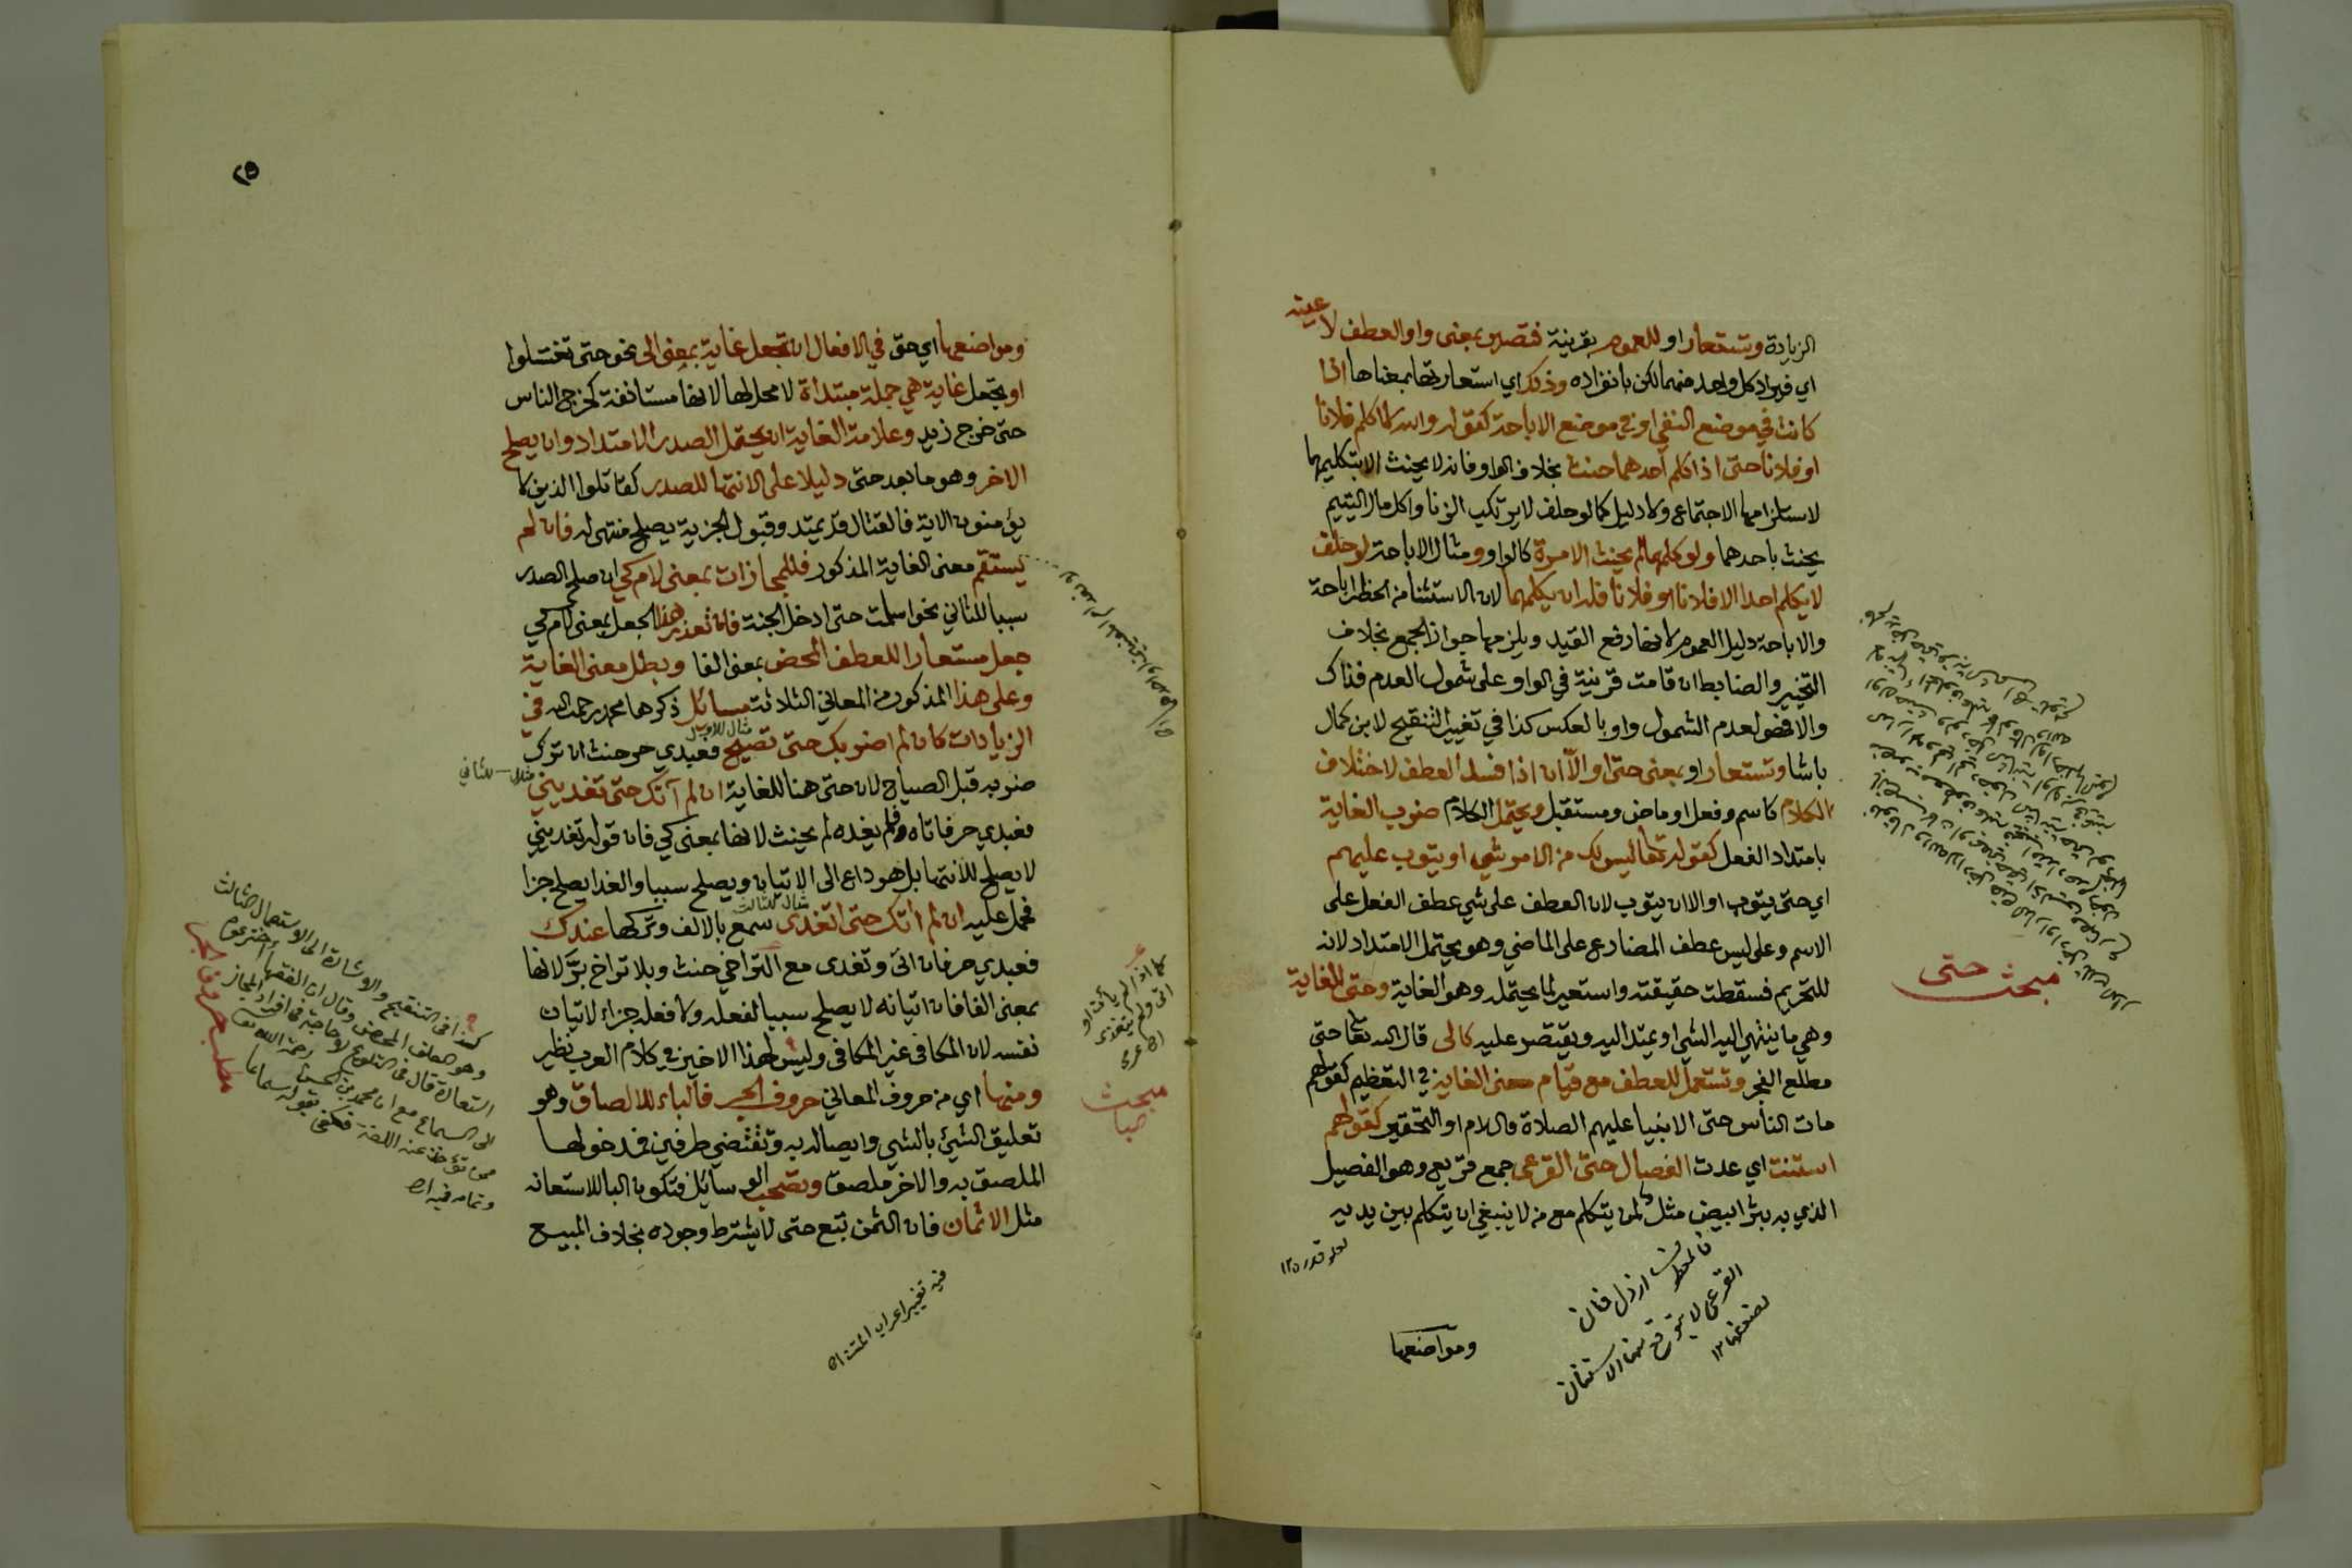 الزيادة وتستعار او للعموم بقرينة فتصير بمعنى واو العطف لا عينه
اي فيراد كل واحد منهما لكن بانفراده وذلك اي استعارتها بمعناها اذا
كانت في موضع النفي او في موضع الاباحة كقوله والله لا اكلم فلانا
او فلانا حتى اذا كلم احدهما حنث بخلاف الواو فانه لا يحنث الا بتكليمهما
لاستلزامها الاجتماع ولا دليل كما لو حلف لا يرتكب الزنا واكل مال اليتيم
يحنث باحدهما ولو كلمهما لم يحنث الا مرة كالواو ومثال الاباحة لو حلف
لا يكلم احدا الا فلانا او فلانا فله ان يكلمهما لان الاستثنا من الحظر اباحة
والاباحة دليل العموم لانها رفع القيد ويلزمها جواز الجمع بخلاف
التخيير والضابط ان قامت قرينة في الواو على شمول العدم فذاك
والا فهو لعدم الشمول واو بالعكس كذا في تغيير التنقيح لابن كمال
باشا وتستعار او بمعنى حتى او الا ان اذا فسد العطف لاختلاف
الكلام كاسم وفعل او ماض ومستقبل ويحتمل الكلام ضرب الغاية
بامتداد الفعل كقوله تعالى ليس لك من الامر شي او يتوب عليهم
اي حتى يتوب او الا ان يتوب لان العطف على شي عطف الفعل على
الاسم وعلى ليس عطف المضارع على الماضي وهو يحتمل الامتداد لانه
للتحريم فسقطت حقيقته واستعير لما يحتمله وهو الغاية وحتى للغاية
وهي ما ينتهي اليه الشي او يمتد اليه ويقتصر عليه كالى قال الله تعالى حتى
مطلع الفجر وتستعمل للعطف مع قيام معنى الغاية في التعظيم كقولهم
مات الناس حتى الانبيا عليهم الصلاة والسلام او التحقير كقولهم
استنت اي عدت الفصال حتى القرعى جمع قريع وهو الفصيل
الذي به بثر ابيض مثل لمن يتكلم مع من لا ينبغي ان يتكلم بين يديه
ومواضعها
مبحث حتى
٢٥
ومواضعها اي حتى في الافعال ان تجعل غاية بمعنى الى نحو حتى تغتسلوا
او تجعل غاية هي جملة مبتداة لا محل لها لانها مستانفة كخرج الناس
حتى خرج زيد وعلامة الغاية ان يحتمل الصدر الامتداد وان يصلح
الاخر وهو ما بعد حتى دليلا على الانتها للصدر كقاتلوا الذين لا
يؤمنون الاية فالقتال قد يمتد وقبول الجزية يصلح منتهى له فان لم
يستقم معنى الغاية المذكور فللمجازات بمعنى لام كي ان صلح الصدر
سببا للثاني نحو اسلمت حتى ادخل الجنة فان تعذر هذا الجعل بمعنى لام كي
جعل مستعارا للعطف المحض بمعنى الفا وبطل معنى الغاية
وعلى هذا المذكور من المعاني الثلاثة مسائل ذكرها محمد رحمه الله في
مثال للاول
الزيادات كان لم اضربك حتى تصيح فعبدي حر حنث ان ترك
ضربه قبل الصياح لان حتى هنا للغاية ان لم آتك حتى تغديني
مثال للثاني
فعبدي حر فاتاه فلم يغده لم يحنث لانها بمعنى كي فان قوله تغديني
لا يصلح للانتها بل هو داع الى الاتيان ويصلح سببا والغدا يصلح جزا
مثال للثالث
فحمل عليه ان لم اتك حتى اتغدى سمع بالالف وتركها عندك
فعبدي حر فان اتى وتغدى مع التراخي حنث وبلا تراخ بر لانها
بمعنى الفا فان اتيانه لا يصلح سببا لفعله ولا فعله جزاء لاتيان
نفسه لان المكافى غير المكافى وليس لهذا الاخير في كلام العرب نظير
ومنها اي من حروف المعاني حروف الجر فالباء للالصاق وهو
تعليق الشئ بالشي وايصاله به وتقتضي طرفين فمدخولها
الملصق به والاخر ملصق وتصحب الوسائل فتكون البا للاستعانه
مثل الاثمان فان الثمن تبع حتى لا يشترط وجوده بخلاف المبيع
فيه تغيير اعراب المتن اه